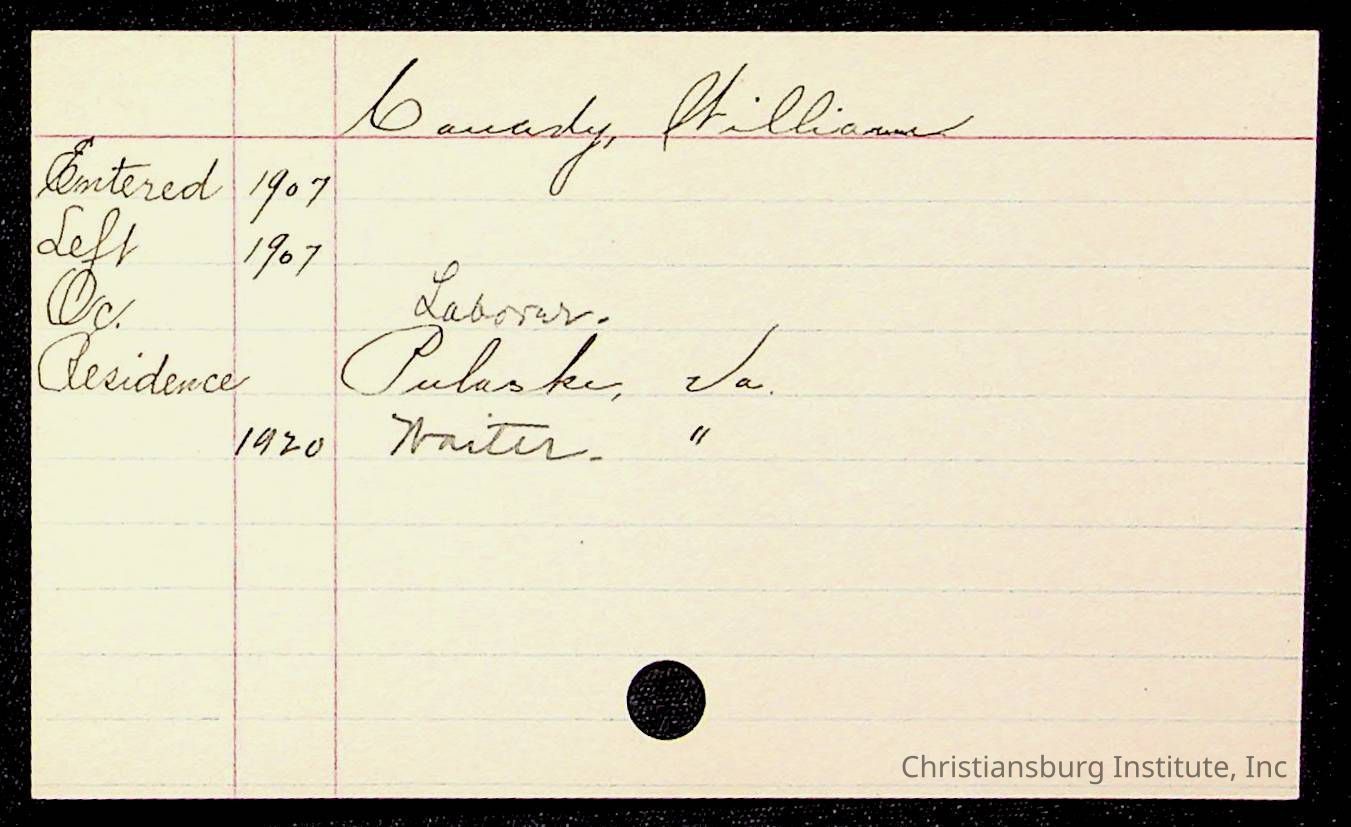 Canady, William
Entered 1907
Left 1907
Oc. Laborer.
Residence Pulaski, Va.
1920 Waiter. "
Christiansburg Institute, Inc